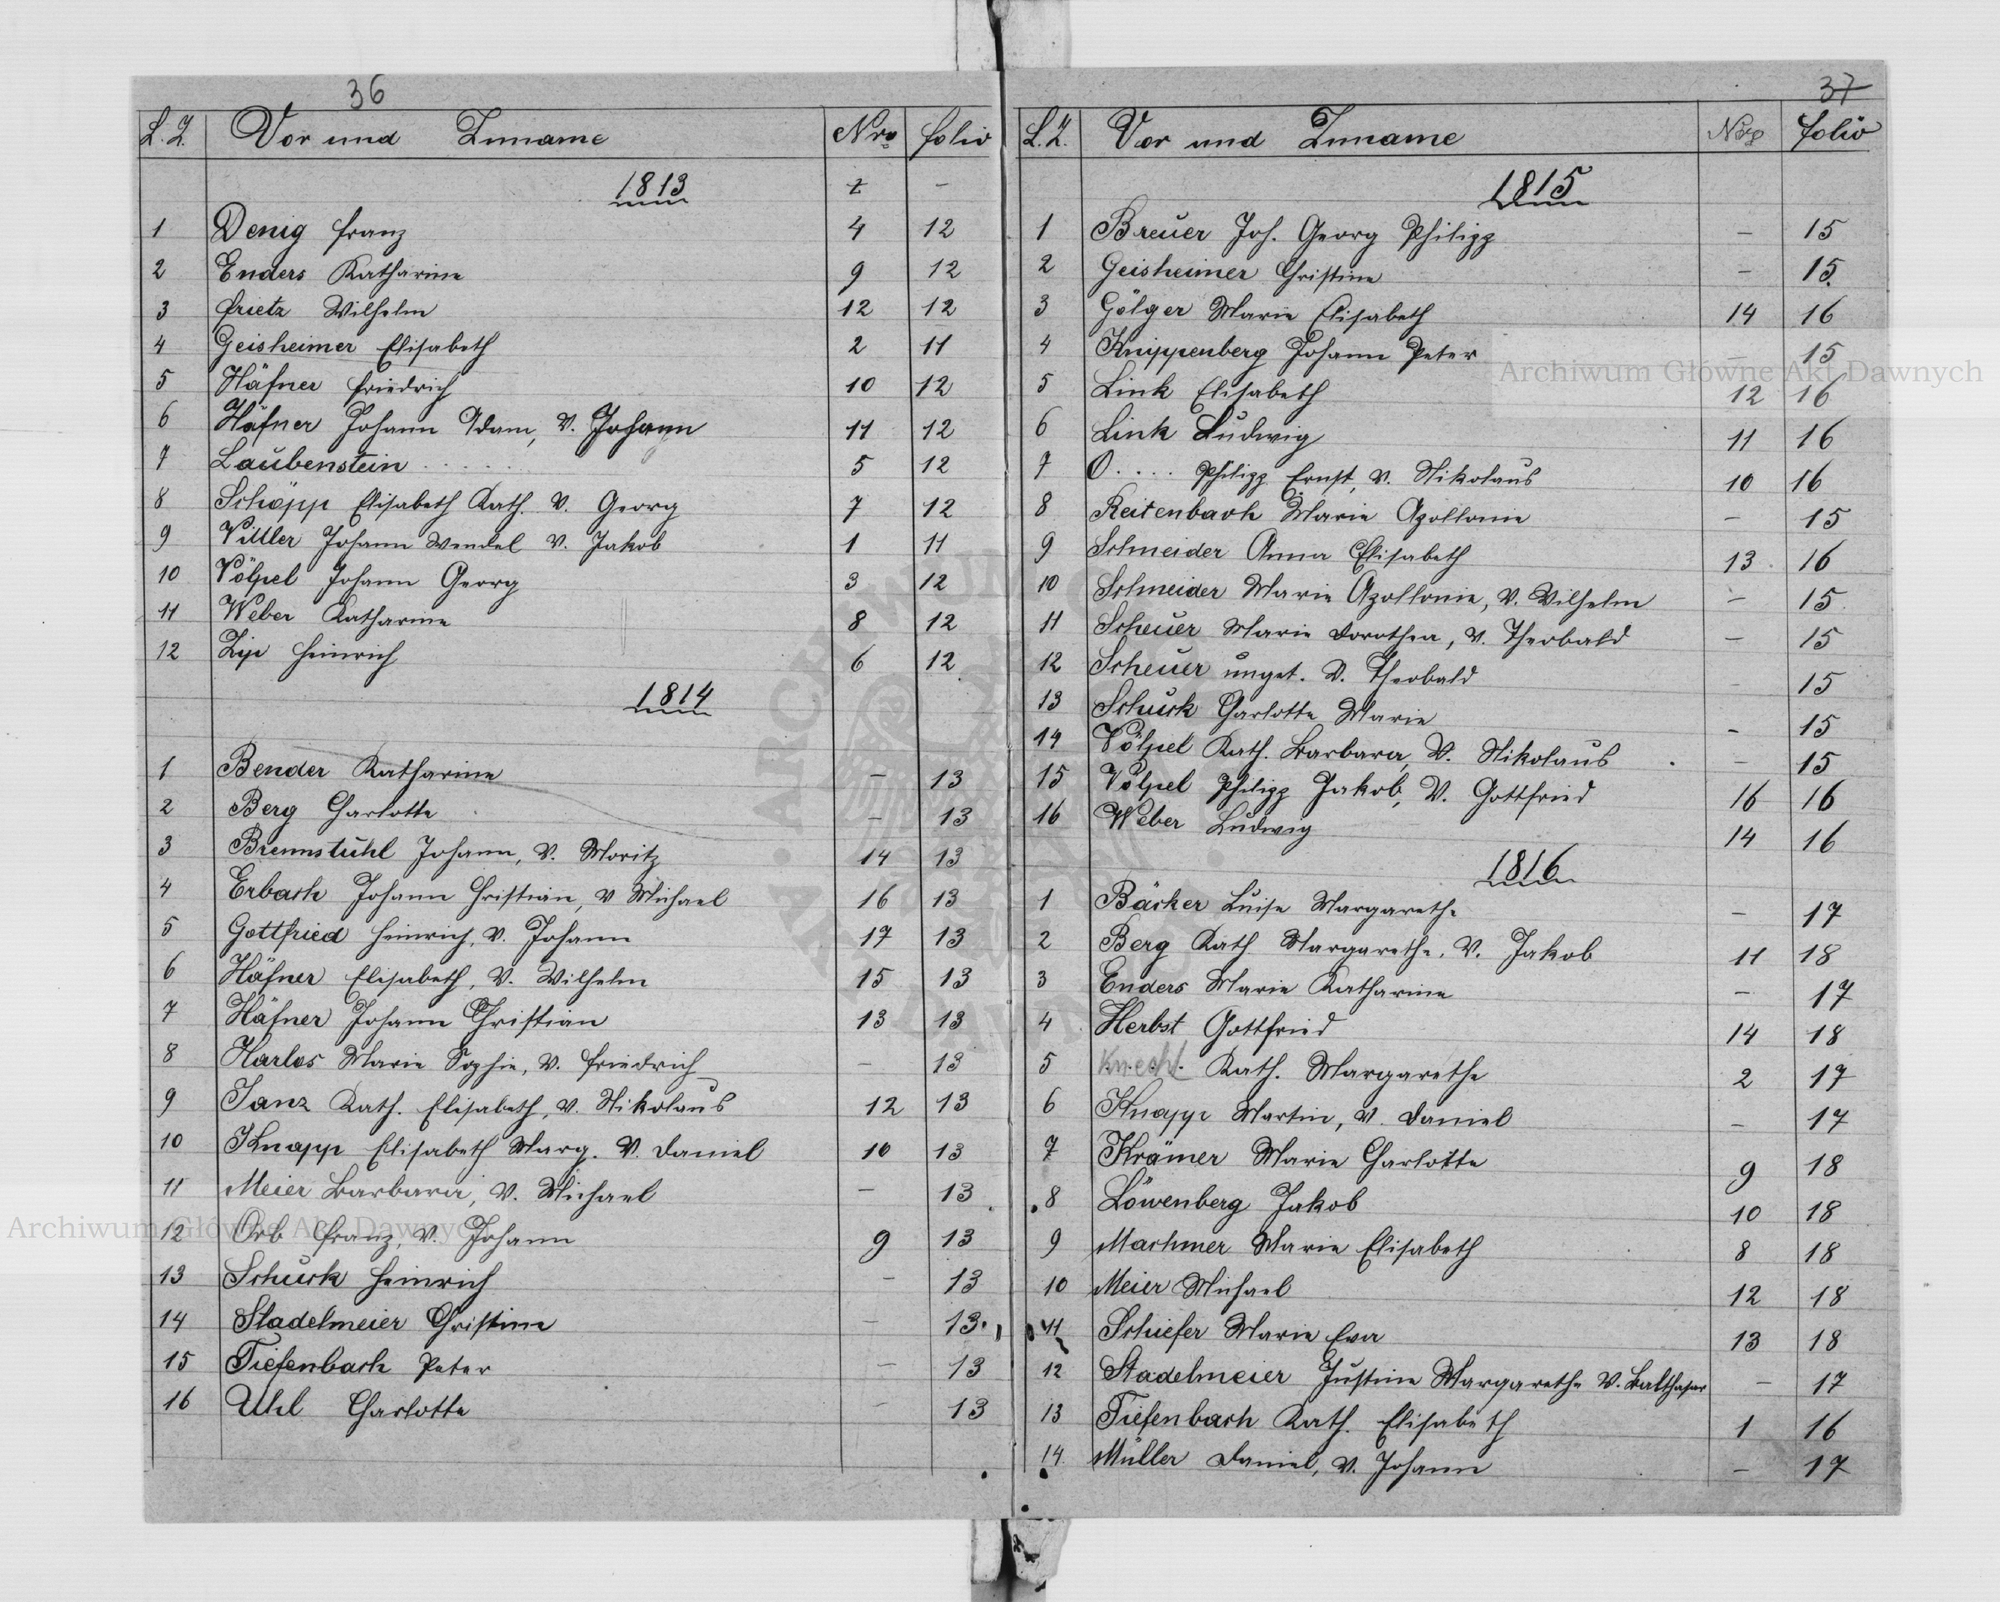 36
L. Z. Vor und Zuname Nro folio
1813
1 Denig Franz 4 12
2 Enders Katharine 9 12
3 Frietz Wilhelm 12 12
4 Geisheimer Elisabeth 2 11
5 Häfner Friedrich 10 12
6 Häfner Johann Adam, v. Johann 11 12
7 Laubenstein . . . . . . 5 12
8 Schöpp Elisabeth Kath. v. Georg 7 12
9 Vittler Johann Wendel v. Jakob 1 11
10 Völpel Johann Georg 3 12
11 Weber Katharine 8 12
12 Zip Heinrich 6 12
1814
1 Bender Katharine – 13
2 Berg Charlotte – 13
3 Brennstuhl Johann, v. Moritz 14 13
4 Erbach Johann Christian, v Michael 16 13
5 Gottfried Heinrich, v. Johann 17 13
6 Häfner Elisabeth, v. Wilhelm 15 13
7 Häfner Johann Christian 13 13
8 Harlos Marie Sophie, v. Friedrich – 13
9 Janz Kath. Elisabeth, v. Nikolaus 12 13
10 Knapp Elisabeth Marg. v. Daniel 10 13
11 Meier Barbara, v. Michael – 13
12 Orb Franz, v. Johann 9 13
13 Schuck Heinrich – 13
14 Stadelmeier Christine – 13
15 Tiefenbach Peter – 13
16 Uhl Charlotte – 13
37
L. Z. Vor und Zuname Nro folio
1815
1 Breuer Joh. Georg Philipp – 15
2 Geisheimer Christine – 15
3 Gölger Marie Elisabeth 14 16
4 Knippenberg Johann Peter – 15
5 Link Elisabeth 12 16
6 Link Ludwig 11 16
7 O. . . . . Philipp Ernst, v. Nikolaus 10 16
8 Reitenbach Marie Apollonie – 15
9 Schneider Anna Elisabeth 13 16
10 Schneider Marie Apollonie, v. Wilhelm – 15
11 Scheuer Marie Dorothea, v. Theobald – 15
12 Scheuer unget. v. Theobald 15
13 Schuck Charlotte Marie – 15
14 Völpel Kath. Barbara, v. Nikolaus – 15
15 Völpel Philipp Jakob, v. Gottfried 16 16
16 Weber Ludwig 14 16
1816
1 Bäcker Luise Margarethe – 17
2 Berg Kath. Margarethe, v. Jakob 11 18
3 Enders Marie Katharine – 17
4 Herbst Gottfried 14 18
5 Knecht Kath. Margarethe 2 17
6 Knapp Martin, v. Daniel – 17
7 Krämer Marie Charlotte 9 18
8 Löwenberg Jakob 10 18
9 Machmer Marie Elisabeth 8 18
10 Meier Michael 12 18
11 Schiefer Marie Eva 13 18
12 Stadelmeier Justine Margarethe v. Balthasar – 17
13 Tiefenbach Kath. Elisabeth 1 16
14. Müller Daniel, v. Johann – 17
Archiwum Główne Akt Dawnych
Archiwum Główne Akt Dawnych